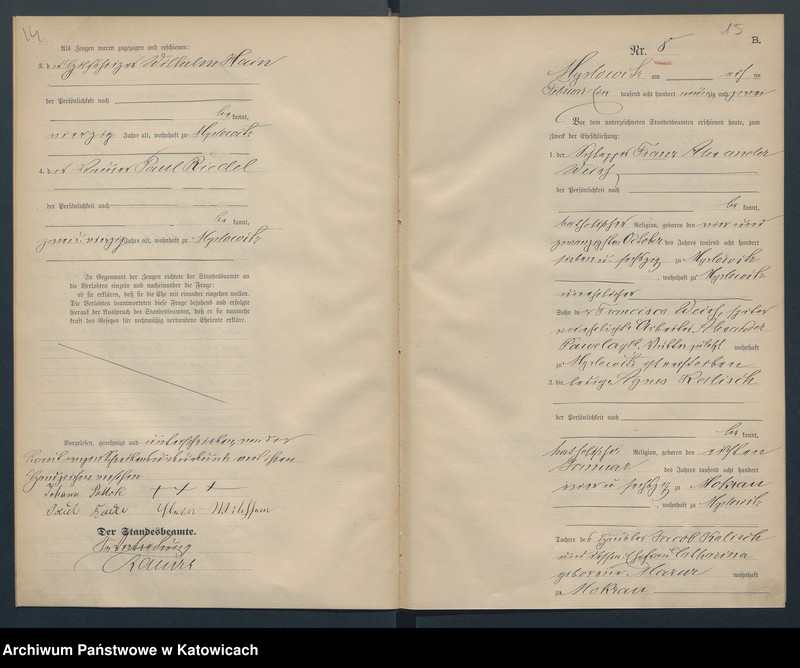 14
Als Zeugen waren zugezogen und erschienen:
3. der Wilhelm Hain
der Persönlichkeit nach
be kannt,
vierzig Jahre alt, wohnhaft zu Myslowitz
4. der Paul Riedel
der Persönlichkeit nach
be kannt,
zweiundvierzig Jahre alt, wohnhaft zu Myslowitz
In Gegenwart der Zeugen richtete der Standesbeamte an
die Verlobten einzeln und nacheinander die Frage:
ob sie erklären, daß sie die Ehe mit einander eingehen wollen.
Die Verlobten beantworteten diese Frage bejahend und erfolgte
hierauf der Ausspruch des Standesbeamten, daß er sie nunmehr
kraft des Gesetzes für rechtmäßig verbundene Eheleute erkläre.
Vorgelesen, genehmigt und unterschrieben, von der
Handzeichen
Johann + + +
Paul Wilhelm
Der Standesbeamte.
In Vertretung
15
B.
Nr. 8
Myslowitz am elf ten
Februar tausend acht hundert neunzig und zwei
Vor dem unterzeichneten Standesbeamten erschienen heute, zum
Zweck der Eheschließung:
1. der Schlepper Franz Alexander
der Persönlichkeit nach
be kannt,
katholischer Religion, geboren den vier und
zwanzigsten October des Jahres tausend acht hundert
sieben u. sechszig zu Myslowitz
, wohnhaft zu Myslowitz
unehelicher
Sohn der Francisca später
verehelichte Arbeiter Alexander
zuletzt wohnhaft
zu Myslowitz verstorben
2. die ledige Agnes Kalisch
der Persönlichkeit nach
be kannt,
katholischer Religion, geboren den
Januar des Jahres tausend acht hundert
vier u. sechszig zu Mokrau
, wohnhaft zu Myslowitz
Tochter des Häusler Jacob Kalisch
und dessen Ehefrau Catharina
geborene Mazur wohnhaft
zu Mokrau
Archiwum Państwowe w Katowicach